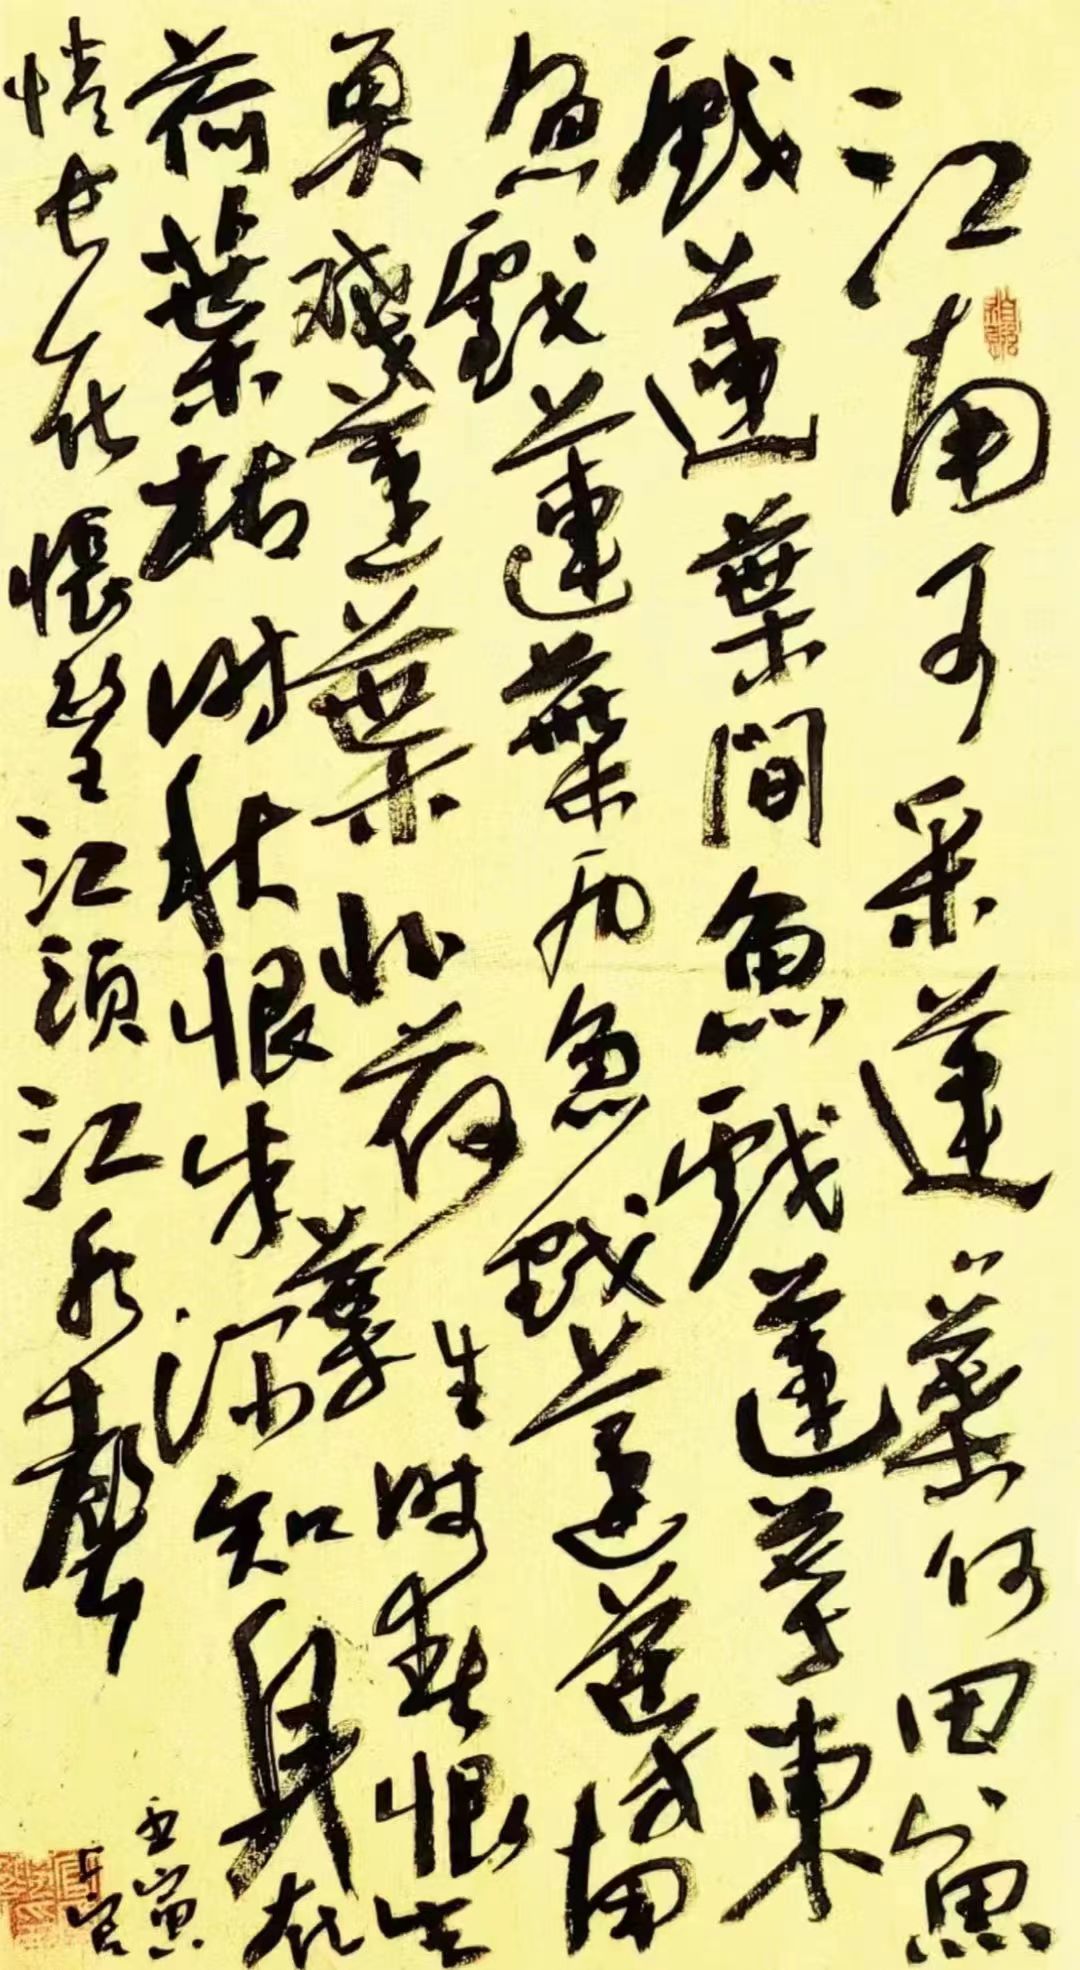 江南可采蓮葉何田魚
戲蓮葉間魚戲蓮葉東
魚戲蓮葉西魚戲蓮葉南
魚戲蓮葉北荷葉生時春恨生
荷葉枯時秋恨成深知身在
情長在悵望江頭江水聲
壬寅